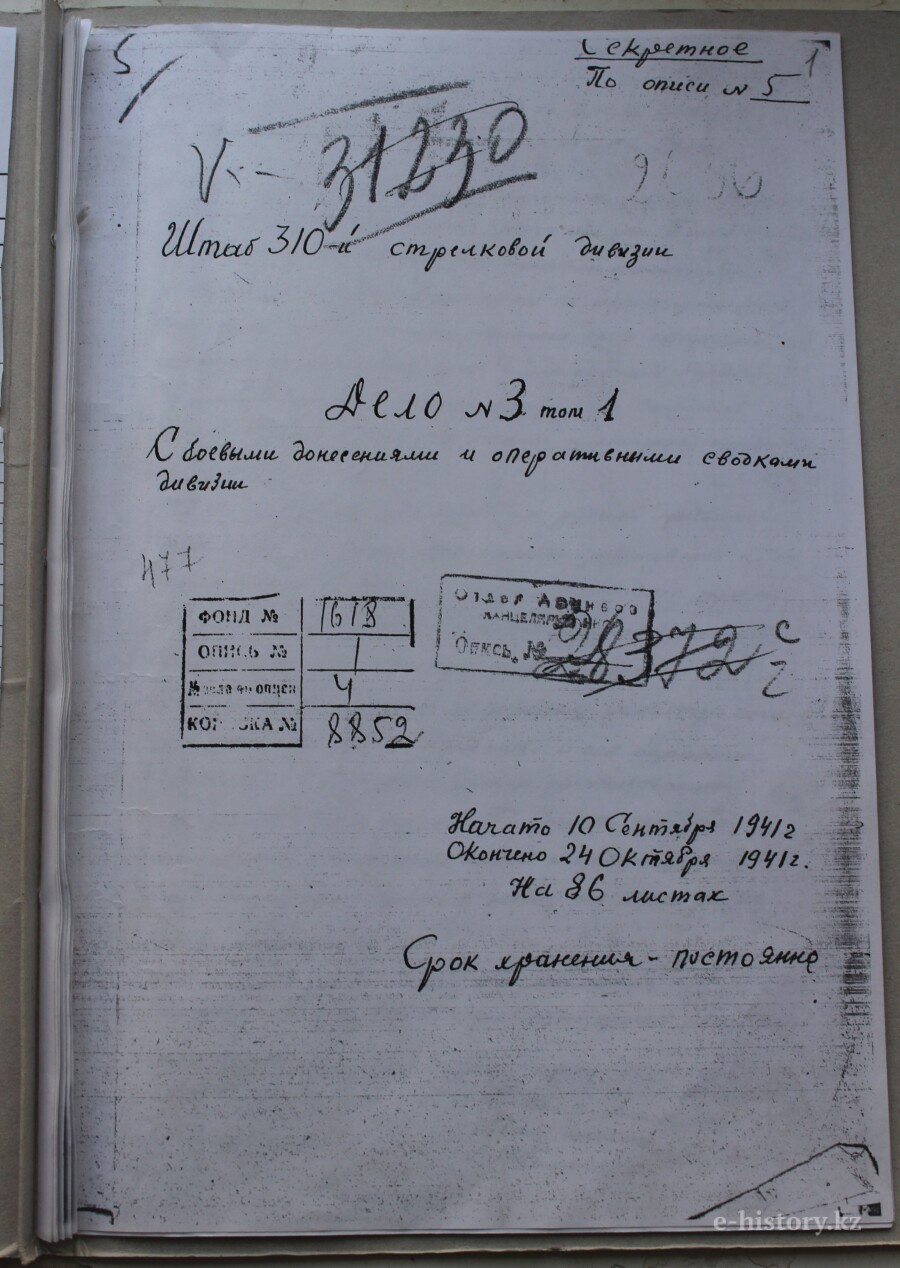 5
Секретное
1
По описи № 5
31230
Штаб 310-й стрелковой дивизии
Дело № 3 том 1
С боевыми донесениями и оперативными сводками
дивизии
477
ФОНД № 1618
ОПИСЬ № 1
№ дела по описи 4
КОРОБКА № 8852
Отдел Архивов
Опись № 28372 с
Начато 10 Сентября 1941 г
Окончено 24 Октября 1941 г.
На 86 листах
Срок хранения - постоянно
e-history.kz